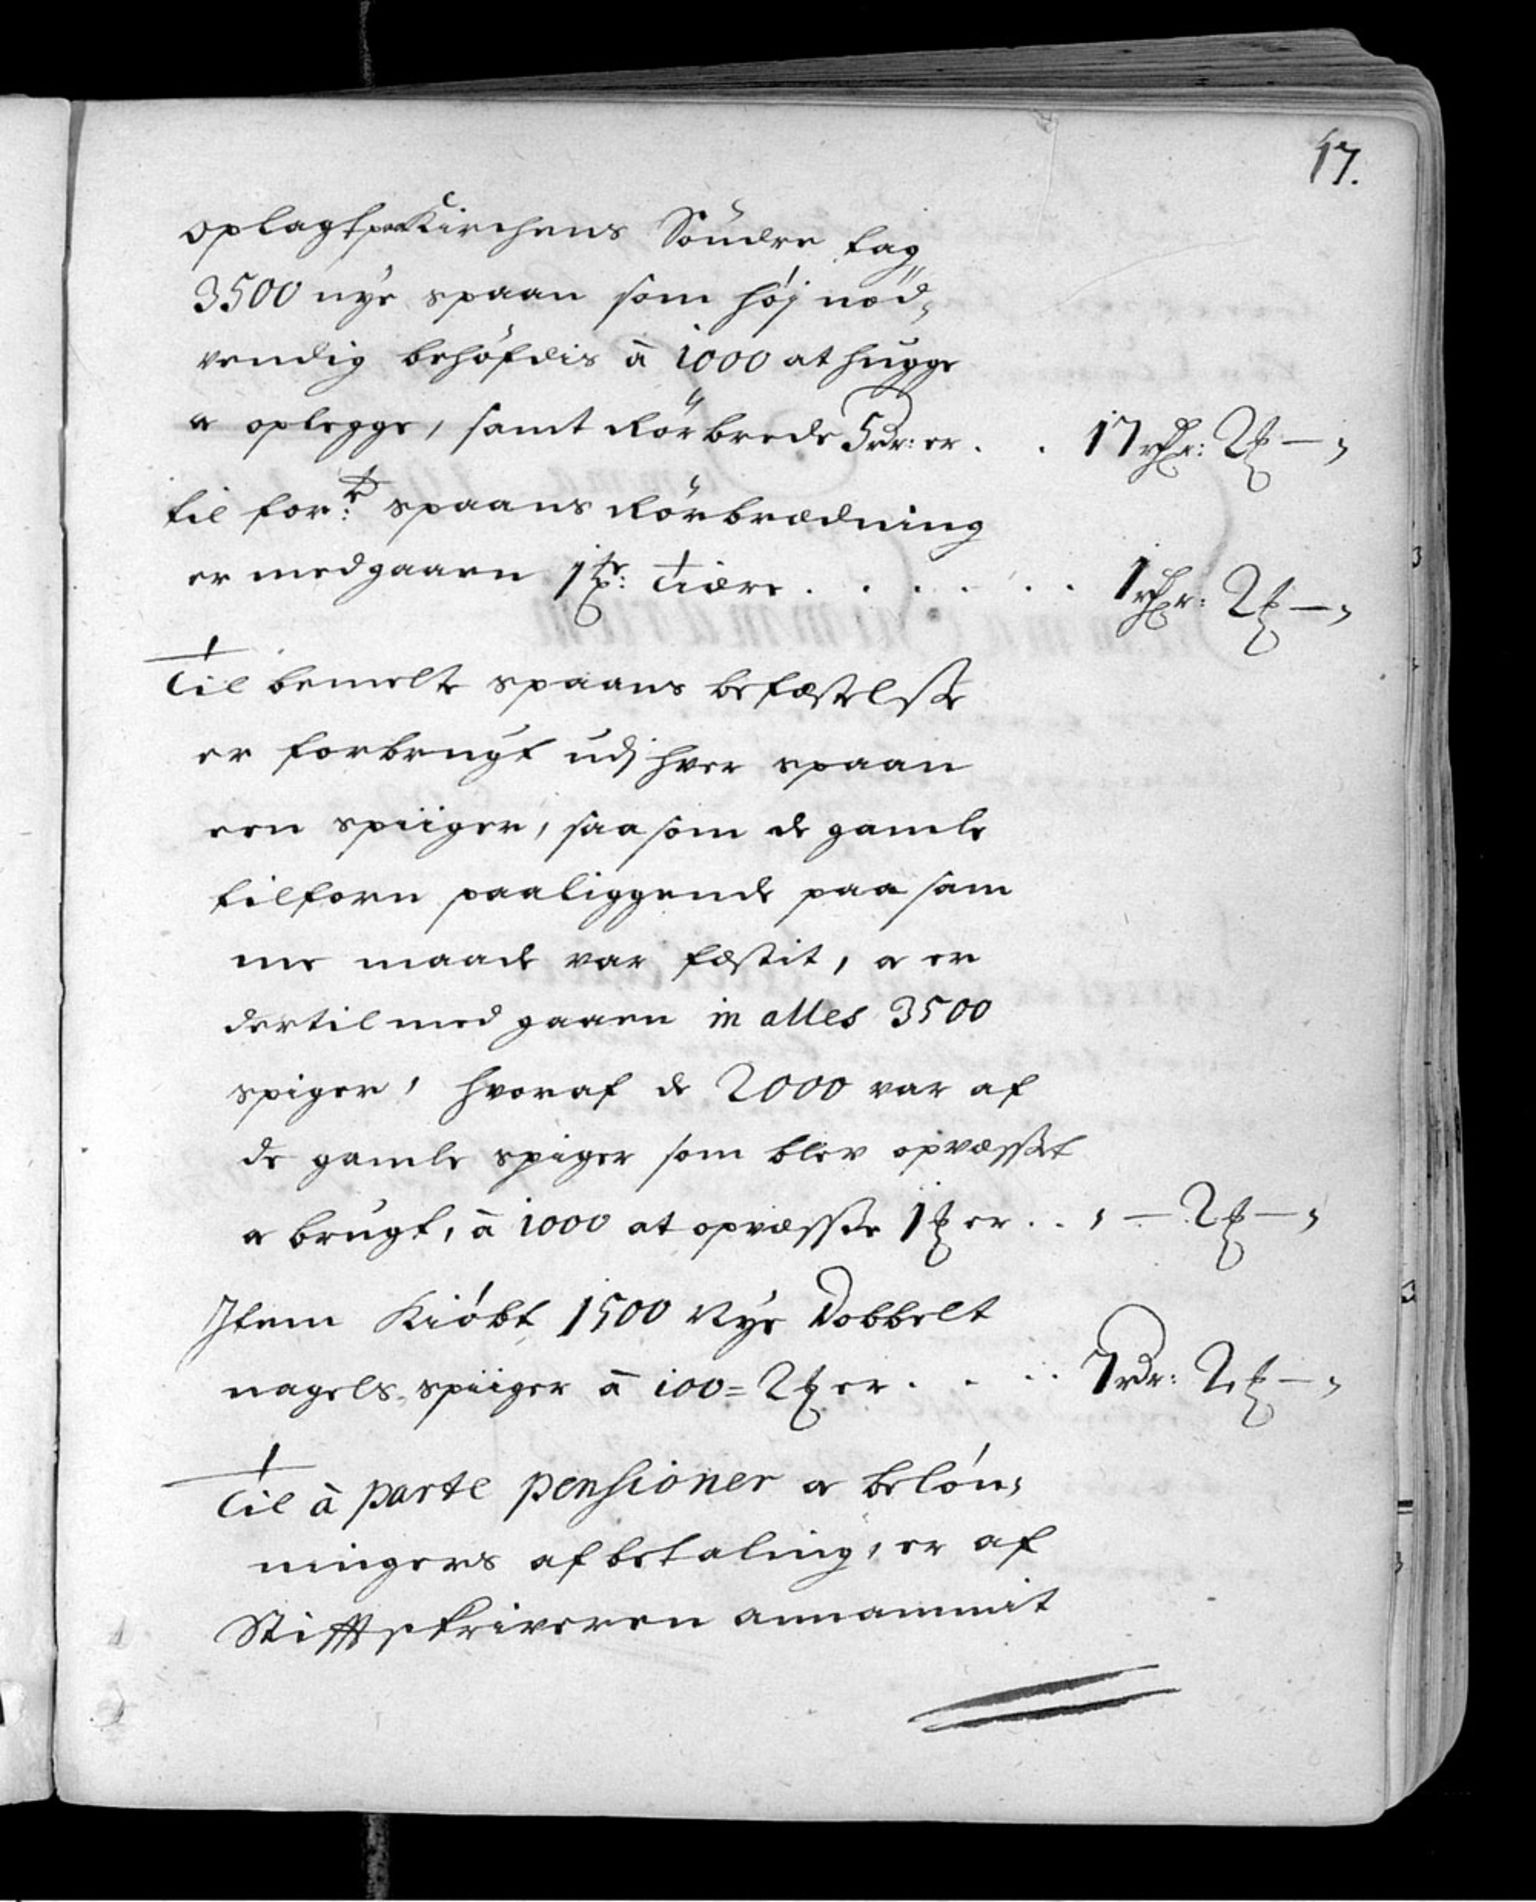 17.
oplagt paa Kirchens Søndre tag
3500 nye spaan som høj nød-
vendig behøfdis à 1000 at hugge
& oplegge, samt Rørbrede 5 rdr: er . . 17 rdr: 2 ꝑ — „
til for:te spaans Rørbrædning
er medgaaen 1 tr: Tiære . . . . . . 1 rdr: 2 ꝑ — „
Til bemelte spaans befæstelsse
er forbrugt udj hver spaan
een spiiger, saasom de gamle
tilforn paaliggende paa sam
me maade var fæstit, & er
dertil medgaaen in alles 3500
spiger, hvoraf de 2000 var af
de gamle spiger som blev opræsset
& brugt, à 1000 at opræsse 1 ꝑ er . . „ — 2 ꝑ — „
Item Kiöbt 1500 Nye Dobbelt
nagels spiiger à 100 = 2 ꝑ er . . . . 7 rdr: 2 ꝑ — „
Til à parte pensioner & beløn-
ningers afbetaling, er af
Stiftskriveren annammit